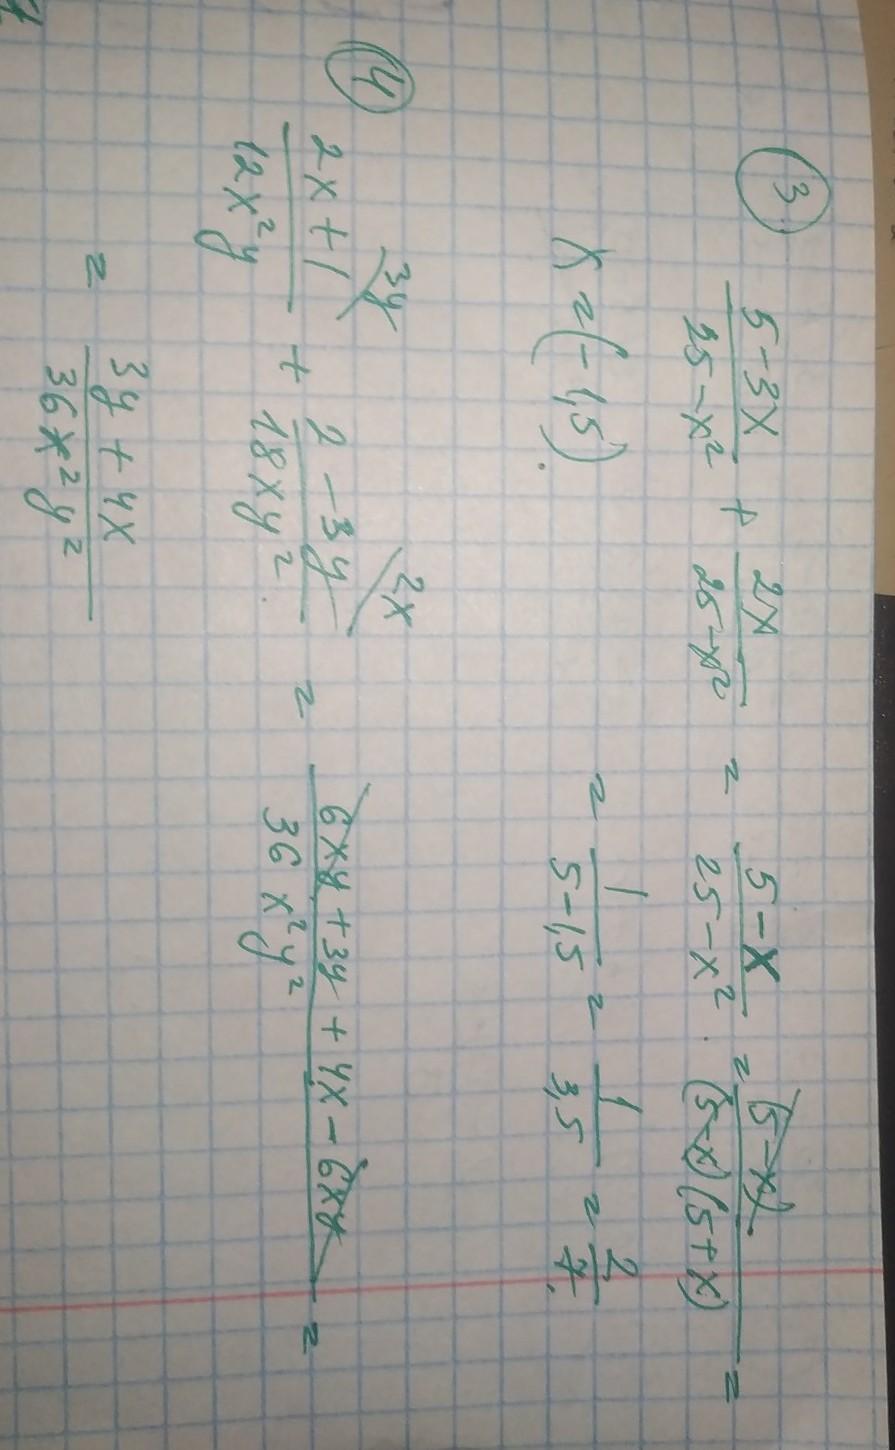 ③ (5-3x)/(25-x²) + 2x/(25-x²) = (5-x)/(25-x²) = (5-x)/((5-x)(5+x)) =
x = (-1,5). = 1/(5-1,5) = 1/3,5 = 2/7.
④ (2x+1)/(12x²y) \3y + (2-3y)/(18xy²) \2x = (6xy + 3y + 4x - 6xy)/(36x²y²) =
= (3y + 4x)/(36x²y²)